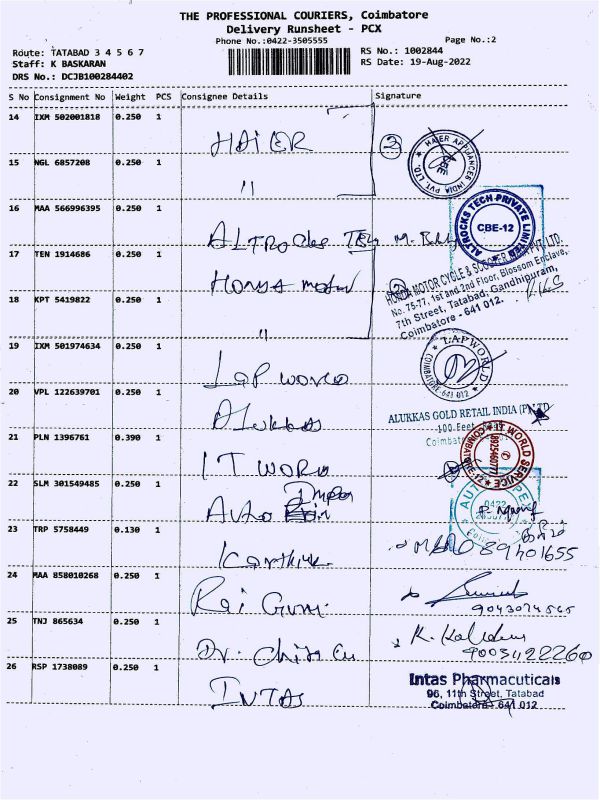 THE PROFESSIONAL COURIERS, Coimbatore
Delivery Runsheet - PCX
Phone No.:0422-3505555
Page No.:2
Route: TATABAD 3 4 5 6 7
RS No.: 1002844
Staff: K BASKARAN
RS Date: 19-Aug-2022
DRS No.: DCJB100284402
S No Consignment No Weight PCS Consignee Details Signature
14 IXM 502001818 0.250 1 HAIER 2
HAIER APPLIANCES INDIA PVT. LTD.
15 NGL 6857208 0.250 1 "
16 MAA 566996395 0.250 1 ALTROCKS
ALTROCKS TECH PRIVATE LIMITED
CBE-12
17 TEN 1914686 0.250 1 HONDA MOTOR 2
HONDA MOTOR CYCLE & SCOOTER INDIA PVT. LTD.
No. 75-77, 1st and 2nd Floor, Blossom Enclave,
7th Street, Tatabad, Gandhipuram,
Coimbatore - 641 012.
18 KPT 5419822 0.250 1 "
19 IXM 501974634 0.250 1 Lap world
LAPWORLD
COIMBATORE-641 012
20 VPL 122639701 0.250 1 Alukkas
ALUKKAS GOLD RETAIL INDIA (P) LTD
100 Feet
21 PLN 1396761 0.390 1 IT WORLD
IT WORLD SERVICE
COIMBATORE-12
22 SLM 301549485 0.250 1 Auto
0422
23 TRP 5758449 0.130 1 Karthik
24 MAA 858010268 0.250 1 Raj
25 TNJ 865634 0.250 1 Dr.
26 RSP 1738089 0.250 1 INTAS
Intas Pharmaceuticals
96, 11th Street, Tatabad
Coimbatore - 641 012